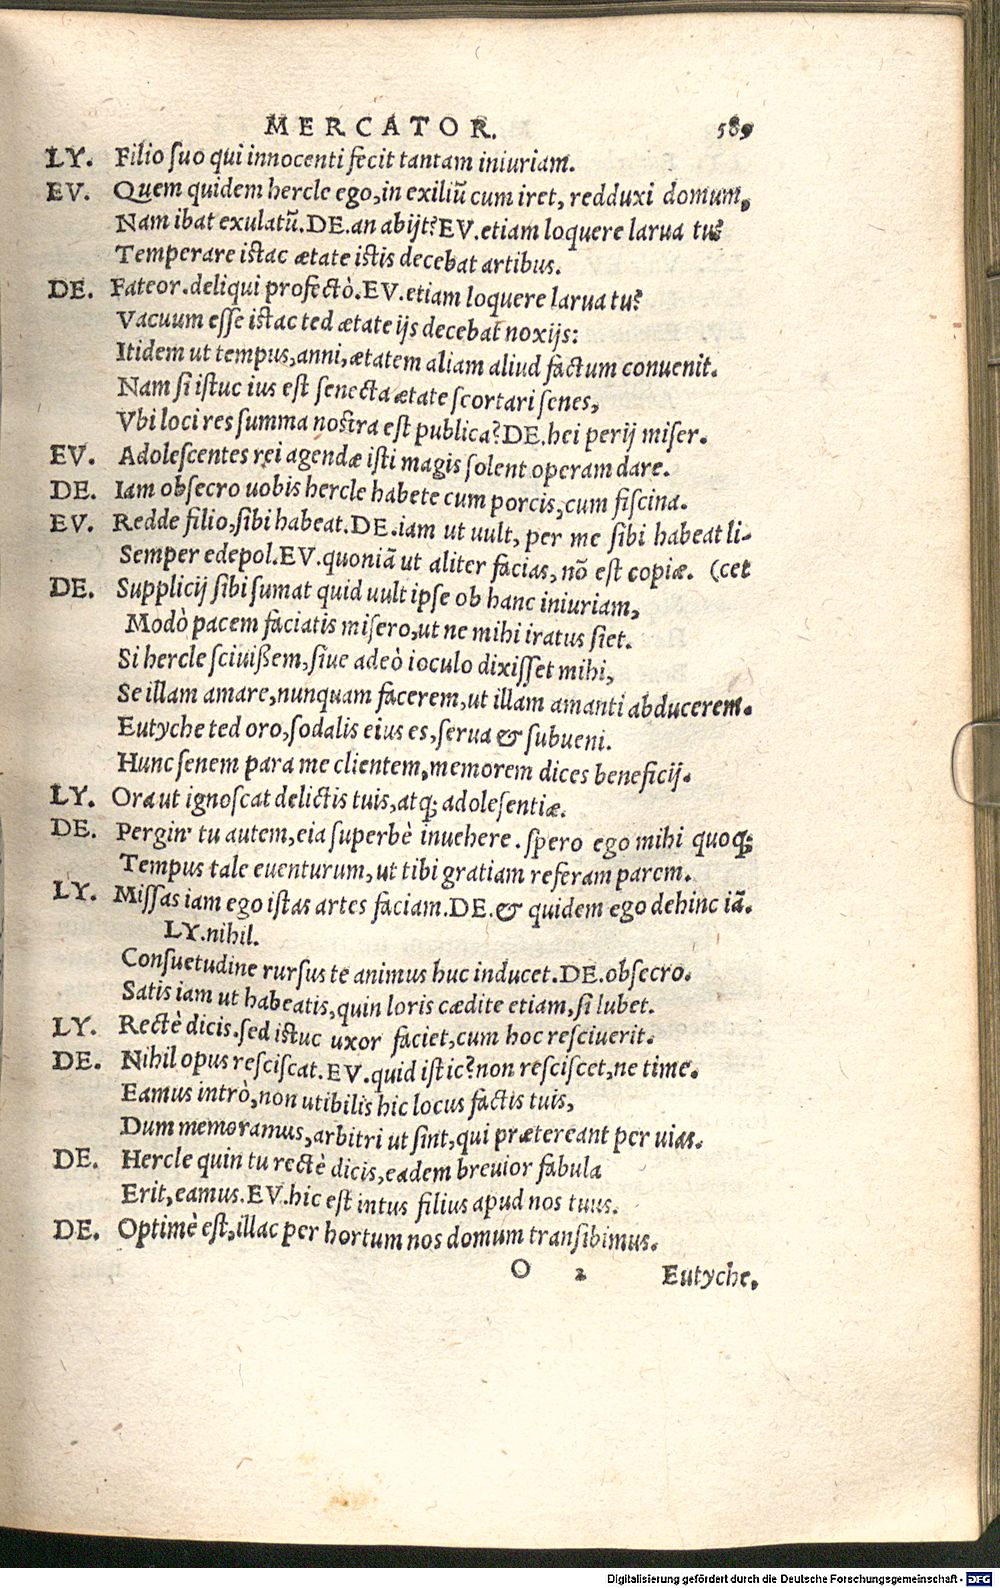 MERCATOR. 589
LY. Filio suo qui innocenti fecit tantam iniuriam.
EV. Quem quidem hercle ego, in exiliũ cum iret, redduxi domum,
Nam ibat exulatũ. DE. an abijt? EV. etiam loquere larua tu?
Temperare istac ætate istis decebat artibus.
DE. Fateor. deliqui profectò. EV. etiam loquere larua tu?
Vacuum esse istac ted ætate ijs decebat noxijs:
Itidem ut tempus, anni, ætatem aliam aliud factum conuenit.
Nam si istuc ius est senecta ætate scortari senes,
Vbi loci res summa nostra est publica? DE. hei perij miser.
EV. Adolescentes rei agendæ isti magis solent operam dare.
DE. Iam obsecro uobis hercle habete cum porcis, cum fiscina.
EV. Redde filio, sibi habeat. DE. iam ut uult, per me sibi habeat li-
Semper edepol. EV. quoniã ut aliter facias, nõ est copiæ. (cet
DE. Supplicij sibi sumat quid uult ipse ob hanc iniuriam,
Modò pacem faciatis misero, ut ne mihi iratus siet.
Si hercle sciuißem, siue adeò ioculo dixisset mihi,
Se illam amare, nunquam facerem, ut illam amanti abducerem.
Eutyche ted oro, sodalis eius es, serua & subueni.
Hunc senem para me clientem, memorem dices beneficij.
LY. Ora ut ignoscat delictis tuis, atq; adolesentiæ.
DE. Pergin' tu autem, eia superbè inuehere. spero ego mihi quoq;
Tempus tale euenturum, ut tibi gratiam referam parem.
LY. Missas iam ego istas artes faciam. DE. & quidem ego dehinc iã.
LY. nihil.
Consuetudine rursus te animus huc inducet. DE. obsecro.
Satis iam ut habeatis, quin loris cædite etiam, si lubet.
LY. Rectè dicis. sed istuc uxor faciet, cum hoc resciuerit.
DE. Nihil opus resciscat. EV. quid istic? non resciscet, ne time.
Eamus intrò, non utibilis hic locus factis tuis,
Dum memoramus, arbitri ut sint, qui prætereant per uias.
DE. Hercle quin tu rectè dicis, eadem breuior fabula
Erit, eamus. EV. hic est intus filius apud nos tuus.
DE. Optimè est, illac per hortum nos domum transibimus.
O 2 Eutyche,
Digitalisierung gefördert durch die Deutsche Forschungsgemeinschaft - DFG